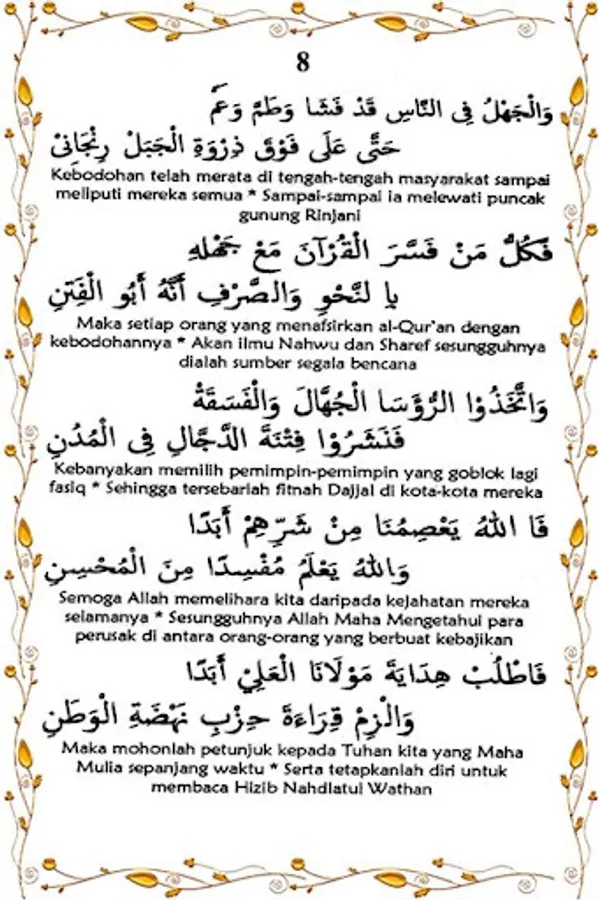 8
وَالْجَهْلُ فِى النَّاسِ قَدْ فَشَا وَطَمَّ وَعَمَّ
حَتَّى عَلَى فَوْقَ ذِرْوَةِ الْجَبَلْ رِنْجَانِىْ
Kebodohan telah merata di tengah-tengah masyarakat sampai
meliputi mereka semua * Sampai-sampai ia melewati puncak
gunung Rinjani
فَكُلُّ مَنْ فَسَّرَ الْقُرْآنَ مَعْ جَهْلِهِ
بِا لنَّحْوِ وَالصَّرْفِ أَنَّهُ أَبُو الْفِتَنِ
Maka setiap orang yang menafsirkan al-Qur'an dengan
kebodohannya * Akan ilmu Nahwu dan Sharef sesungguhnya
dialah sumber segala bencana
وَاتَّخَذُوْا الرُّؤَسَا الْجُهَّالَ وَالْفَسَقَةْ
فَنَشَرُوْا فِتْنَةَ الدَّجَّالِ فِى الْمُدُنِ
Kebanyakan memilih pemimpin-pemimpin yang goblok lagi
fasiq * Sehingga tersebarlah fitnah Dajjal di kota-kota mereka
فَا اللهُ يَعْصِمُنَا مِنْ شَرِّهِمْ أَبَدًا
وَاللهُ يَعْلَمُ مُفْسِدًا مِنَ الْمُحْسِنِ
Semoga Allah memelihara kita daripada kejahatan mereka
selamanya * Sesungguhnya Allah Maha Mengetahui para
perusak di antara orang-orang yang berbuat kebajikan
فَاطْلُبْ هِدَايَةَ مَوْلَانَا الْعَلِيْ أَبَدًا
وَالْزِمْ قِرَاءَةَ حِزْبِ نَهْضَةِ الْوَطَنِ
Maka mohonlah petunjuk kepada Tuhan kita yang Maha
Mulia sepanjang waktu * Serta tetapkanlah diri untuk
membaca Hizib Nahdlatul Wathan